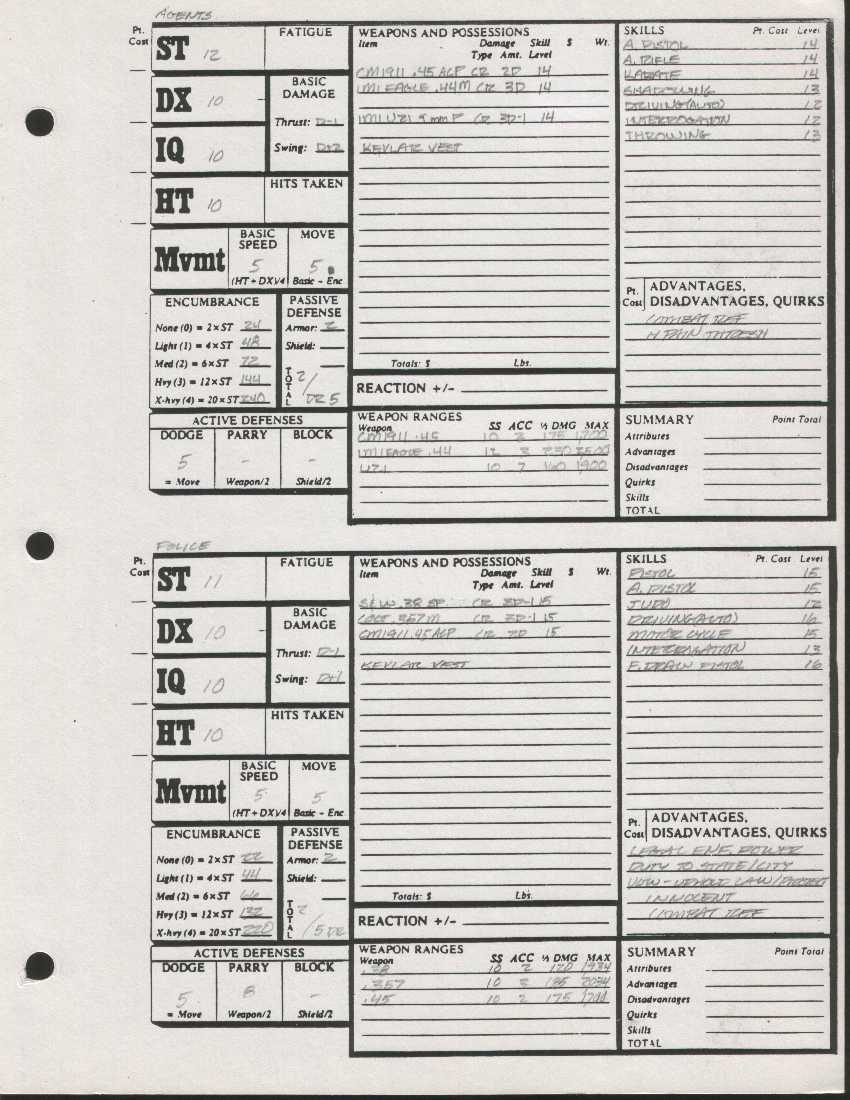 AGENTS
Pt. Cost
ST 12
FATIGUE
DX 10
BASIC DAMAGE
Thrust: D-1
Swing: D+2
IQ 10
HT 10
HITS TAKEN
Mvmt
BASIC SPEED
5
(HT + DX)/4
MOVE
5
Basic - Enc
ENCUMBRANCE
None (0) = 2 x ST 24
Light (1) = 4 x ST 48
Med (2) = 6 x ST 72
Hvy (3) = 12 x ST 144
X-hvy (4) = 20 x ST 240
PASSIVE DEFENSE
Armor: 2
Shield:
TOTAL 2/DR 5
ACTIVE DEFENSES
DODGE PARRY BLOCK
5 - -
= Move Weapon/2 Shield/2
WEAPONS AND POSSESSIONS
Item Damage Skill $ Wt.
Type Amt. Level
CM1911 .45 ACP CR 2D 14
IMI EAGLE .44M CR 3D 14
IMI UZI 9mm P CR 3D-1 14
KEVLAR VEST
Totals: $ Lbs.
REACTION +/-
WEAPON RANGES
Weapon SS ACC ½ DMG MAX
CM1911 .45 10 2 175 1,700
IMI EAGLE .44 12 3 2,500
UZI 10 7 160 1,900
SKILLS Pt. Cost Level
A. PISTOL 14
A. RIFLE 14
KARATE 14
SHADOWING 13
DRIVING (AUTO) 12
INTERROGATION 12
THROWING 13
Pt. Cost
ADVANTAGES, DISADVANTAGES, QUIRKS
COMBAT REF
H PAIN THRESH
SUMMARY Point Total
Attributes
Advantages
Disadvantages
Quirks
Skills
TOTAL
POLICE
Pt. Cost
ST 11
FATIGUE
DX 10
BASIC DAMAGE
Thrust: D-1
Swing: D+1
IQ 10
HT 10
HITS TAKEN
Mvmt
BASIC SPEED
5
(HT + DX)/4
MOVE
5
Basic - Enc
ENCUMBRANCE
None (0) = 2 x ST 22
Light (1) = 4 x ST 44
Med (2) = 6 x ST 66
Hvy (3) = 12 x ST 132
X-hvy (4) = 20 x ST 220
PASSIVE DEFENSE
Armor: 2
Shield:
TOTAL 2/5 DR
ACTIVE DEFENSES
DODGE PARRY BLOCK
5 8 -
= Move Weapon/2 Shield/2
WEAPONS AND POSSESSIONS
Item Damage Skill $ Wt.
Type Amt. Level
S&W .38 SP CR 2D-1 15
COLT .357 M CR 3D-1 15
CM1911 .45 ACP CR 2D 15
KEVLAR VEST
Totals: $ Lbs.
REACTION +/-
WEAPON RANGES
Weapon SS ACC ½ DMG MAX
.38 10 2 120 1934
.357 10 2 185 2034
.45 10 2 175 1700
SKILLS Pt. Cost Level
PISTOL 15
A. PISTOL 15
JUDO 12
DRIVING (AUTO) 16
MOTOR CYCLE 15
INTERROGATION 13
F. DRAW PISTOL 16
Pt. Cost
ADVANTAGES, DISADVANTAGES, QUIRKS
LEGAL ENF. POWER
DUTY TO STATE/CITY
VOW - UPHOLD LAW/PROTECT
INNOCENT
COMBAT REF
SUMMARY Point Total
Attributes
Advantages
Disadvantages
Quirks
Skills
TOTAL